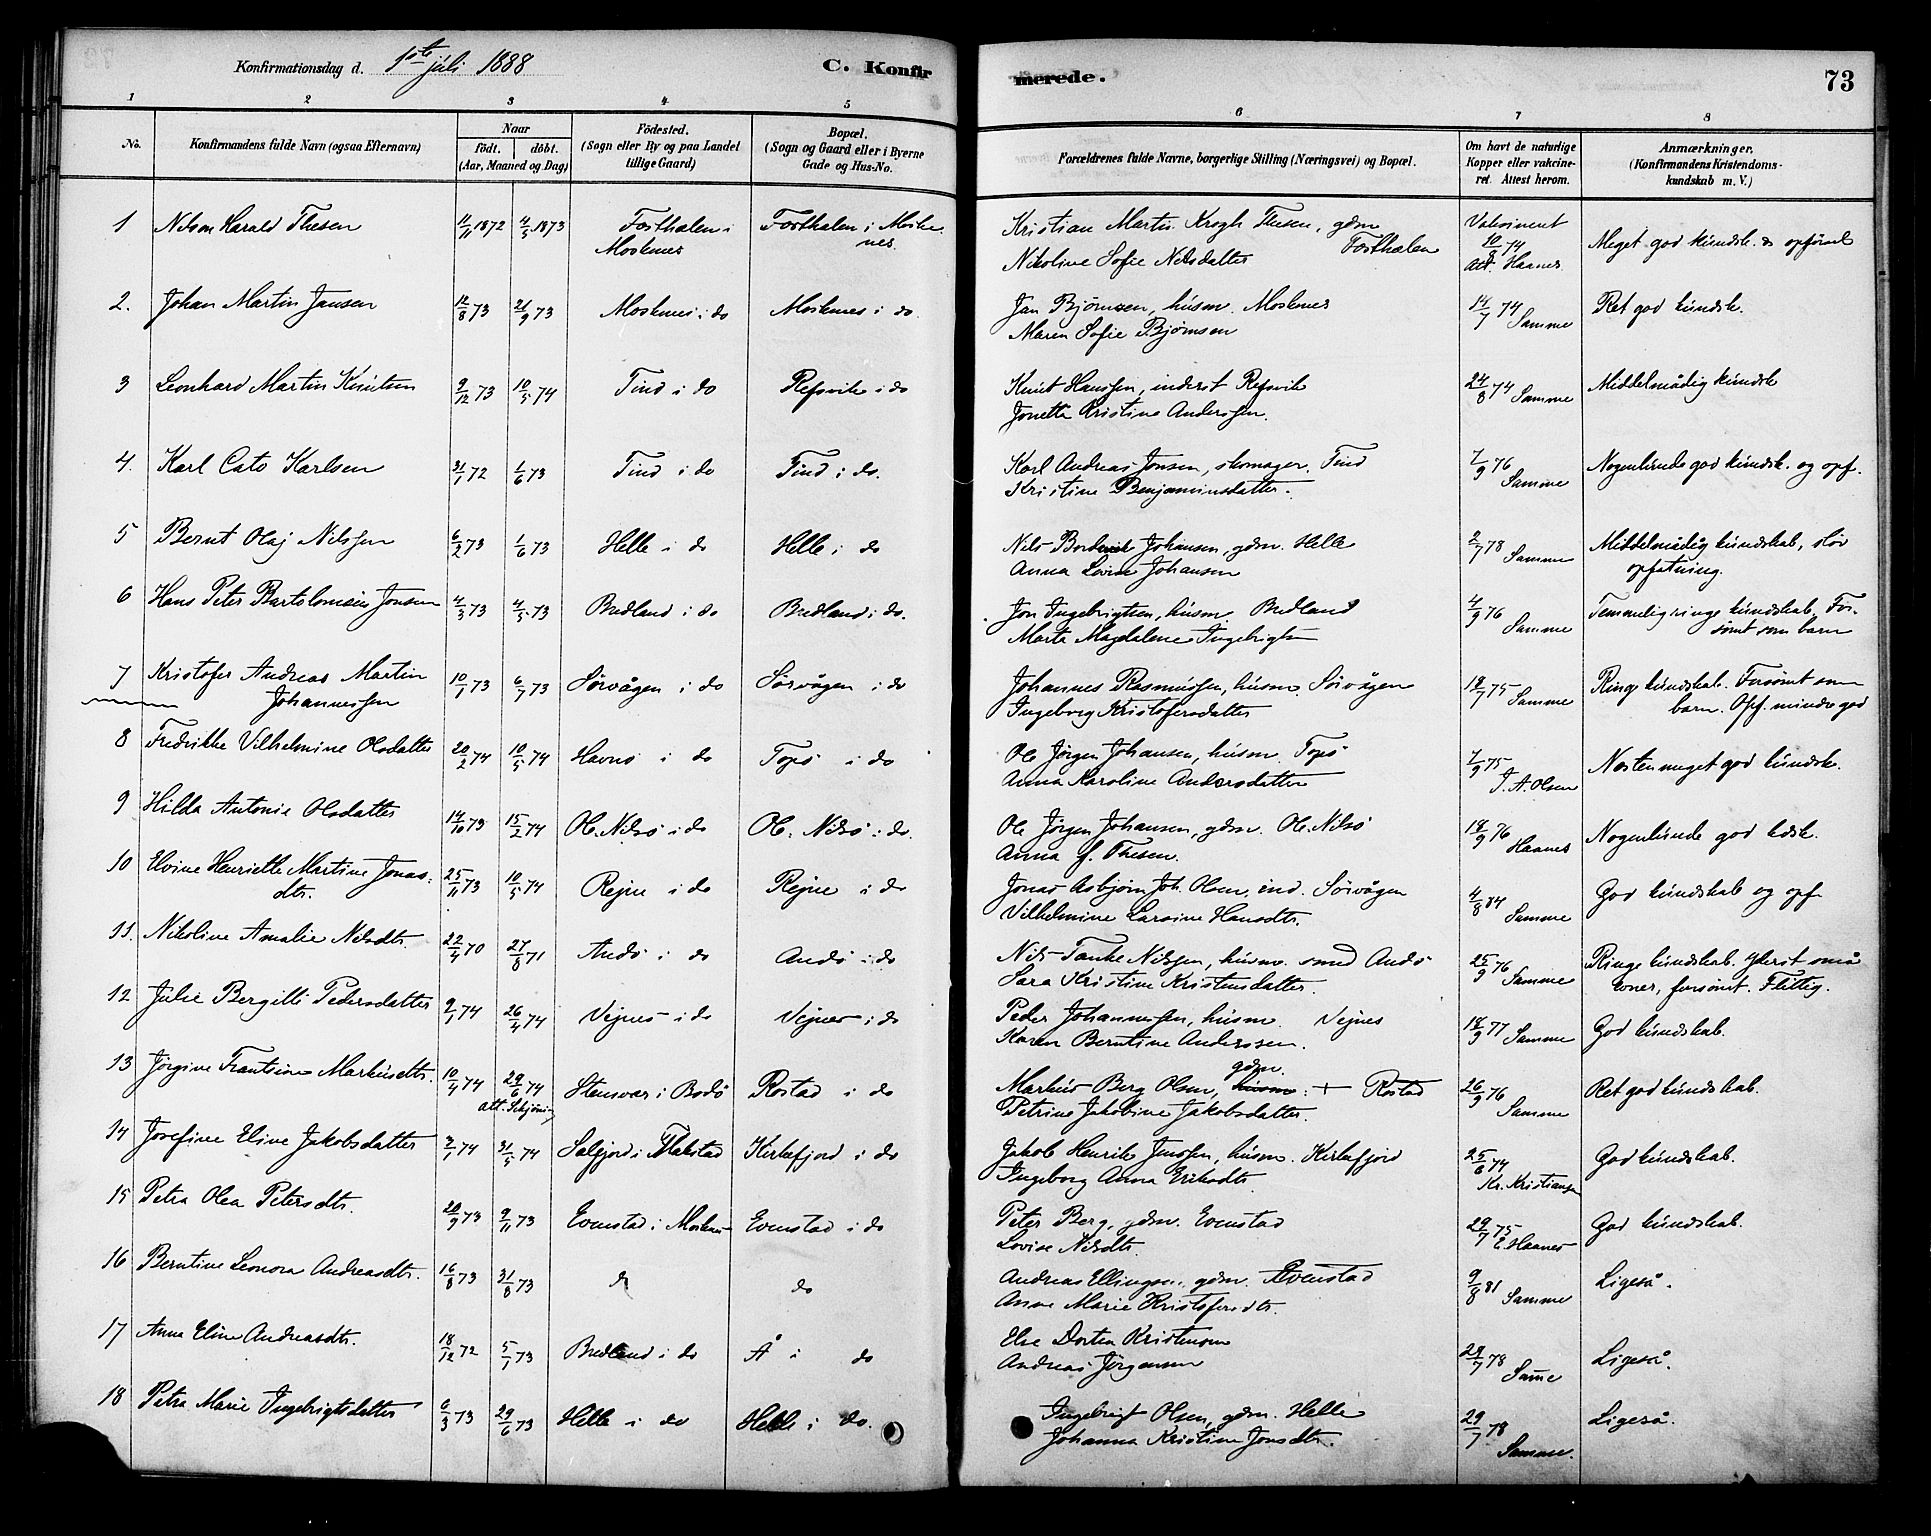 Konfirmationsdag d. 1ste juli 1888
C. Konfirmerede.
73
1 2 3 4 5 6 7 8
No.
Konfirmandens fulde Navn (ogsaa Efternavn)
Naar
födt. döbt.
(Aar, Maaned og Dag)
Födested.
(Sogn eller By og paa Landet
tillige Gaard)
Bopæl.
(Sogn og Gaard eller i Byerne
Gade og Hus-No.
Forældrenes fulde Navne, borgerlige Stilling (Næringsvei) og Bopæl.
Om havt de naturlige
Kopper eller vakcine-
ret. Attest herom.
Anmærkninger.
(Konfirmandens Kristendoms-
kundskab m. V.)
1 Nilson Harald Thesen 11/11 1872 4/5 1873 Forsthalen i Forsthalen i Moske Kristian Martin Krogh Thesen, gdm Vaksinent
Moskenes nes. Nikoline Sofie Nilsdatter Forsthalen 10/8 74 Meget god kundsk. & opførsel
Att. Haanes
2. Johan Martin Jansen 12/8 73 21/9 73 Moskenes i do Moskenes i do. Jan Bjørnsen, husm. Moskenes 14/7 74 Samme Ret god kundsk.
Maren Sofie Bjørnsen
3 Leonhard Martin Knutsen 9/12 73 10/5 74 Tind i do Refsvik i do Knut Hanssen, inderst Refsvik 24/8 74 Samme Middelmådig kundsk
Jonetta Kristine Anderssen.
4. Karl Cato Karlsen 31/1 72 1/6 73 Tind i do Tind i do. Karl Andreas Jonsen, skomager. Tind 7/9 76 Samme Nogenlunde god kundsk. og opf.
Kristine Benjaminsdatter.
5 Bernt Olaj Nilssen 6/2 73 1/6 73 Helle i do Helle i do Nils Johansen, gdm. Helle 2/7 78 Samme Middelmådig kundskab, sløv
Anna Lovise Johansen opfatning.
6 Hans Peter Bartolomeus Jonsen 4/3 73 4/5 73 Bredland i do Bredland i do. Jon Ingebrigtsen, husm Bredland 4/9 76 Samme Temmelig ringe kundskab, For-
Marta Magdalene Ingebrigtsn sømt som barn
7 Kristofer Andreas Martin 10/1 73 6/7 73 Sörvågen i do Sörvågen i do Johannes Rasmussen, husm. Sörvågen 18/7 75 Samme Ringe kundskab. Forsömt som
Johannessen Ingeborg Kristofersdatter barn. Opf. mindre god
8 Fredrikke Vilhelmine Olsdatter 20/2 74 10/5 74 Havnö i do Topö i do Ole Jørgen Johansen, husm. Topö 7/9 75 Næsten meget god kundsk.
Anna Karoline Andersdatter J. A. Olsen
9 Hilda Antonie Olsdatter 14/10 73 15/2 74 Ol. Nilsö i do Ol. Nilsö i do. Ole Jørgen Johansen, gdm. Ol. Nilsö 18/9 76 Haanes Nogenlunde god kdsk.
Anna f. Thesen.
10 Elvine Henriette Martine Jonas- 25/11 73 10/5 74 Rejne i do Rejne i do Jonas Asbjørn Joh. Olsen, ind. Sörvågen 4/8 84 Samme God kundskab og opf
dtr. Vilhelmine Larsine Hansdtr.
11. Nikoline Amalie Nilsdtr. 22/4 70 27/8 71 Andö i do Andö i do Nils Tanke Nilsen, husm. smed Andö 25/9 76 Samme Ringe kundskab. yderst små
Sara Kristine Kristensdatter. evner, forsömt. Flittig.
12 Julie Bergitte Pedersdatter 9/1 74 26/4 74 Vejnes i do Vejnes i do Peder Johannessen, husm. Vejnes 18/9 77 Samme God kundskab.
Karen Berntine Anderssen.
13 Jørgine Frantsine Markusdtr. 10/4 74 29/6 74 Stensvær i Bodö Rostad i do Markus Berg Olsen, gdm. husm. + Rostad 26/9 76 Samme Ret god kundskab.
Att. Schjöning Petrine Jakobine Jakobsdatter.
14 Josefine Eline Jakobsdatter 2/1 74 31/5 74 Selfjord i Flakstad Kirkefjord i do Jakob Henrik Jenssen, husm. Kirkefjord 25/6 74 God kundskab.
Ingeborg Anna Eriksdtr Kr. Kristiansen
15 Petra Olea Petersdtr. 20/9 73 9/11 73 Evenstad i Moskenes Evenstad i do Peter Berg, gdm. Evenstad 29/7 75 God kundskab.
Lovise Nilsdtr. E. Haanes
16 Berntine Leonora Andreasdtr. 16/8 73 31/8 73 do do Andreas Ellingsen, gdm. Evenstad 9/8 81 Samme Ligeså.
Anne Marie Kristofersdtr.
17 Anna Eline Andreasdtr. 18/12 72 5/1 73 Bredland i do Å i do Else Dorten Kristensen 28/7 78 Same Ligeså.
Andreas Jørgensen
18 Petra Marie Ingebrigtsdatter 6/3 73 29/6 73 Helle i do Helle i do. Ingebrigt Olsen, gdm. Helle 29/7 78 Samme. Ligeså.
Johanna Kristine Jonsdtr.